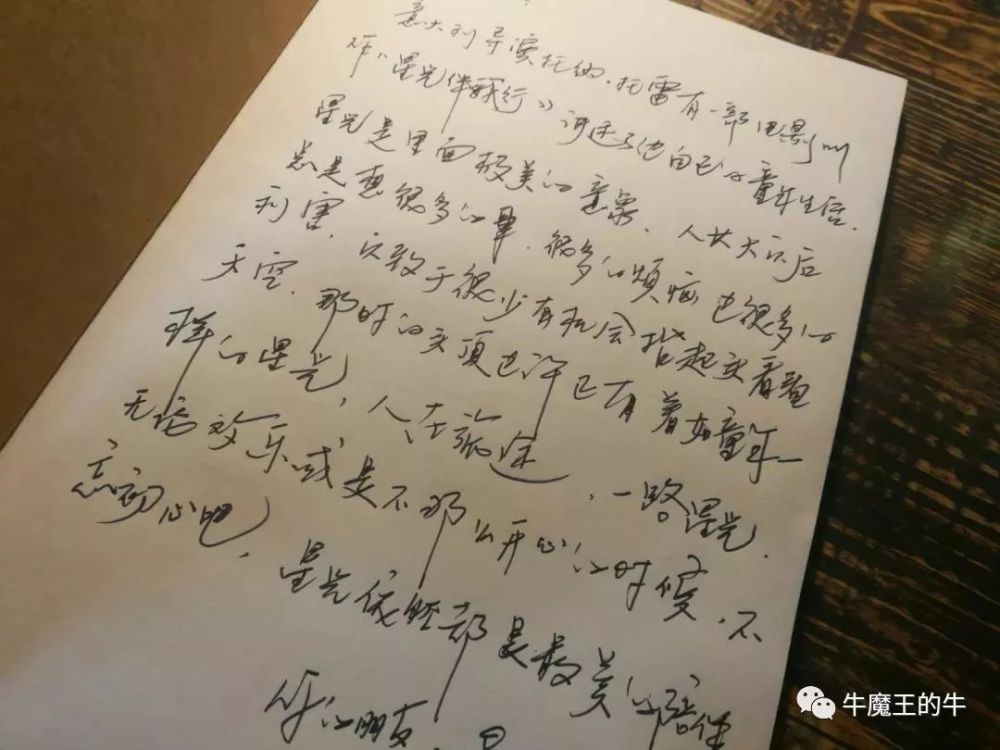 意大利导演托纳·托雷有一部电影叫
作《星光伴我行》讲述了他自己的童年生活.
星光是里面极美的意象、人长大以后
总是想很多的事.很多的烦恼也很多的
利害.以致于很少有机会抬起头看看
天空.那时的头顶也许已有着如童年一
样的星光，人在旅途，一路星光.
无论欢乐或是不那么开心的时候，不
忘初心吧，星光依然都是最美的陪伴
你的朋友，
牛魔王的牛